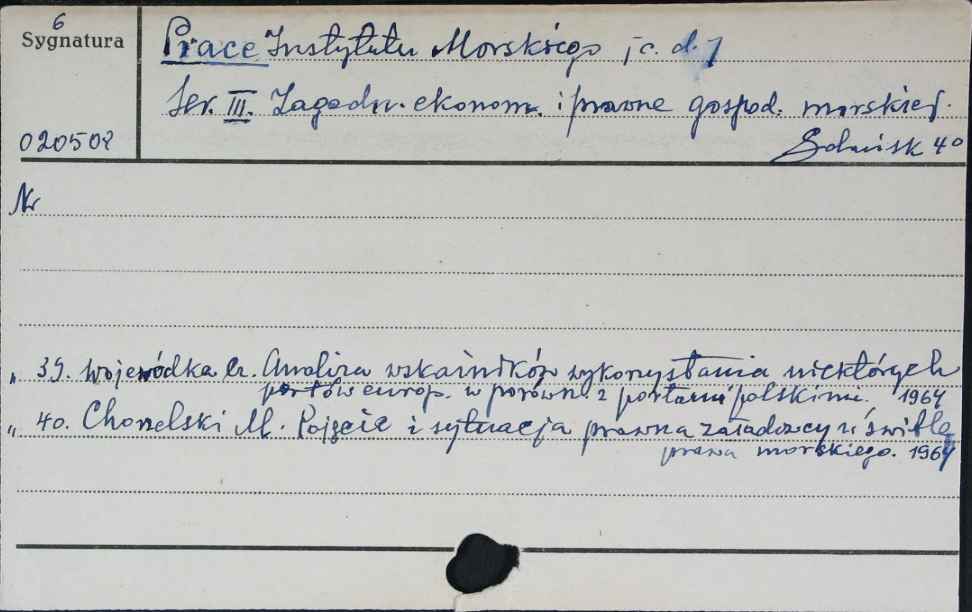 6
Sygnatura
020508
Prace Instytutu Morskiego /c. d./
Ser. III. Zagadn. ekonom. i prawne gospod. morskiej.
Gdańsk 40
Nr
„ 39. Wojewódka Cz. Analiza wskaźników wykorzystania niektórych
portów europ. w porówn. z portami polskimi. 1964
„ 40. Chomelski M. Pojęcie i sytuacja prawna załadowcy w świetle
prawa morskiego. 1964